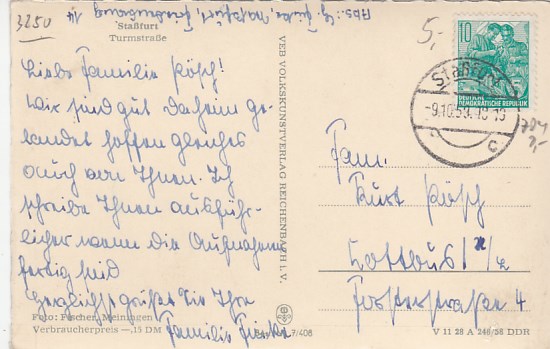 3250
Abs.: G. Fricke, Staßfurt
14
Staßfurt
Turmstraße
Liebe Familie Pösch!
Wir sind gut daheim ge-
landet hoffen gleiches
auch von Ihnen. Ich
schreibe Ihnen ausführ-
licher wenn die Aufnahmen
fertig sind
Herzlichst grüßt Sie Ihre
Familie Fricke
Foto: Fischer, Meiningen
Verbraucherpreis —,15 DM
7/408
VEB VOLKSKUNSTVERLAG REICHENBACH i. V.
5,-
10
DEUTSCHE
DEMOKRATISCHE REPUBLIK
Staßfurt
-9.10.59.
c
Fam.
Kurt Pösch
Cottbus
Forsterstraßen 4
V 11 28 A 246/58 DDR